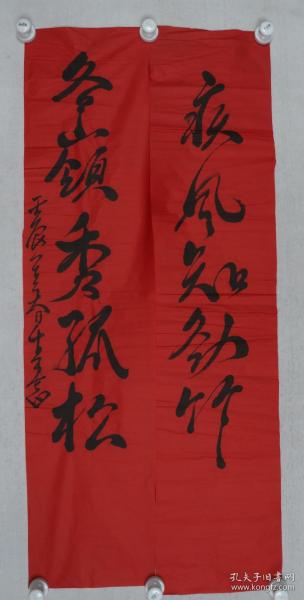 疾风知劲竹
冬嶺秀孤松
孔夫子旧书网
www.kongfz.com